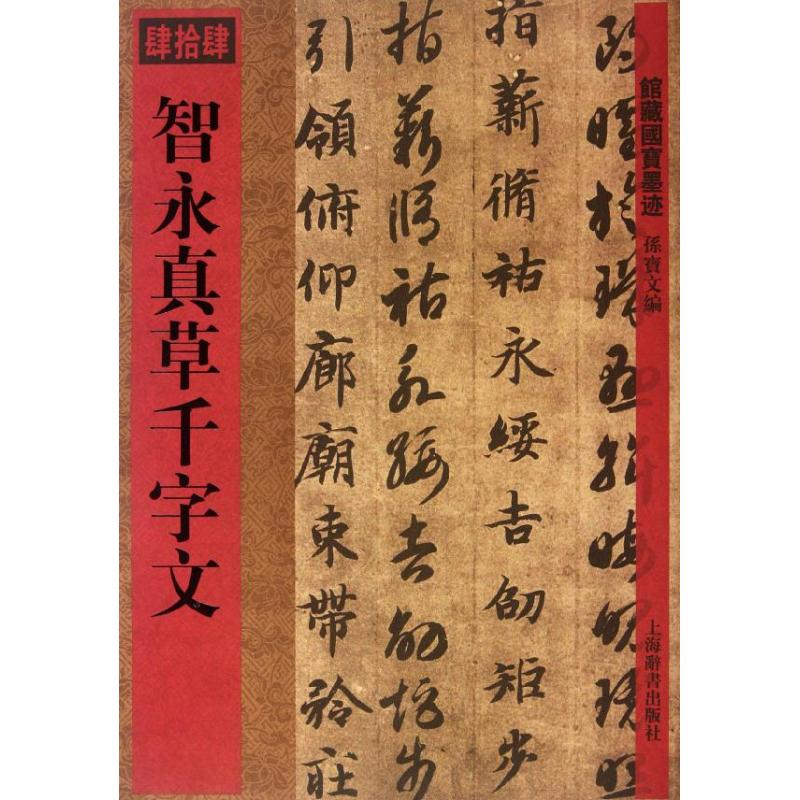 肆拾肆
智永真草千字文
館藏國寶墨迹
孫寶文編
上海辭書出版社
朗曜旋璣懸斡晦魄環照
指薪脩祜永綏吉劭矩步
指薪脩祜永綏吉劭矩步
引領俯仰廊廟束帶矜莊